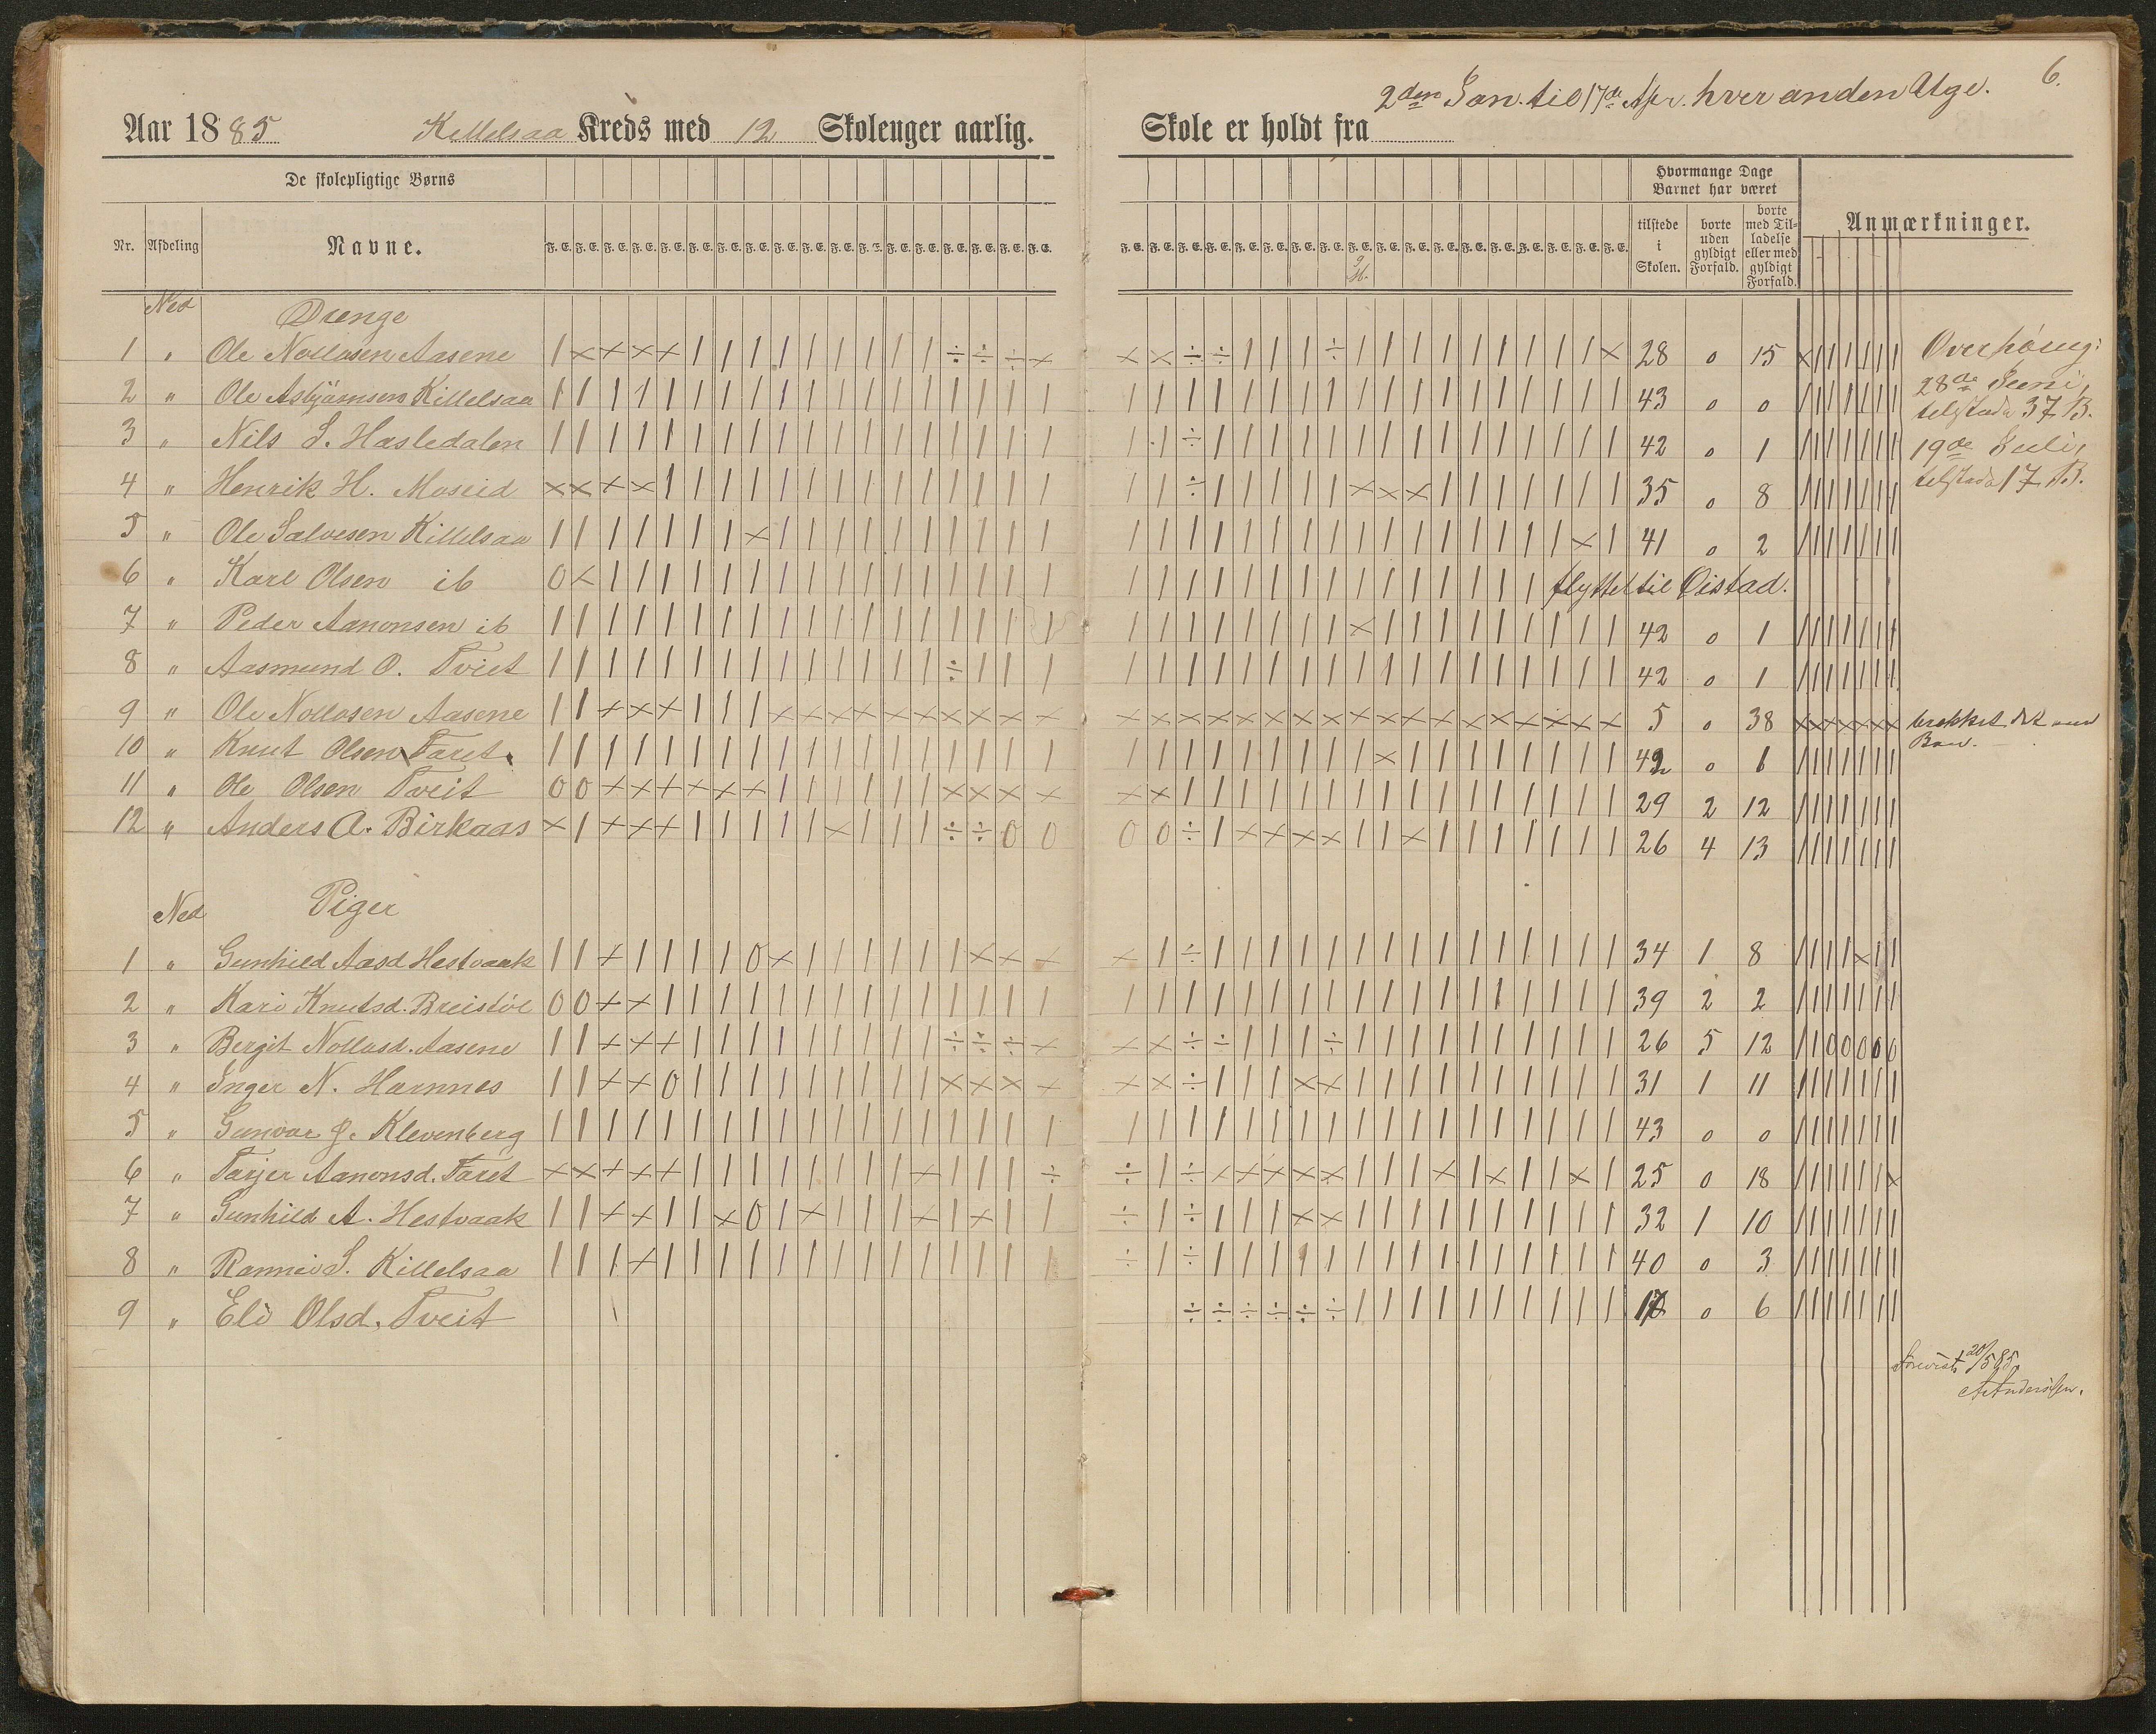 6.
2den Jan. til 17de Apr. hver anden Uge.
Aar 1885 Killelsaa Kreds med 12 Skoleuger aarlig. Skole er holdt fra
De skolepligtige Børns
Hvormange Dage Barnet har været
Anmærkninger.
Nr. Afdeling Navne. F. E. F. E. F. E. F. E. F. E. F. E. F. E. F. E. F. E. F. E. F. E. F. E. F. E. F. E. F. E. F. E. F. E. F. E.
F. E. F. E. F. E. F. E. F. E. F. E. F. E. F. E. F. E. F. E. F. E. F. E. F. E. F. E. F. E. F. E. F. E. F. E.
tilstede i Skolen.
borte uden gyldigt Forfald.
borte med Tilladelse eller med gyldigt Forfald.
Ned Drenge
1 " Ole Nollosen Aasene 28 0 15 Overhøring:
2 " Ole Asbjørnsen Killelsaa 43 0 0 28de Juni, tilstede 37 B.
3 " Nils S. Hasledalen 42 0 1 19de Juli,
4 " Henrik H. Moseid 35 0 8 tilstede 17 B.
5 " Ole Salvesen Killelsaa 41 0 2
6 " Karl Olsen ib flyttet til Øistad.
7 " Peder Aanonsen ib 42 0 1
8 " Aasmund O. Tveit 42 0 1
9 " Ole Nollosen Aasene 5 0 38 brækket det ene Ben.
10 " Knut Olsen Faret 42 0 1
11 " Ole Olsen Tveit 29 2 12
12 " Anders A. Birkaas 26 4 13
Ned Piger
1 " Gunhild Aasd Hestvaak 34 1 8
2 " Kari Knutsd. Breistøl 39 2 2
3 " Bergit Nollosd. Aasene 26 5 12
4 " Inger N. Harnnes 31 1 11
5 " Gunvor J. Klevenberg 43 0 0
6 " Tarjer Aanonsd. Faret 25 0 18
7 " Gunhild A. Hestvaak 32 1 10
8 " Rannei S. Killelsaa 40 0 3
9 " Eli Olsd. Tveit 17 0 6
Forevist 20/5 85
A. Andersen.